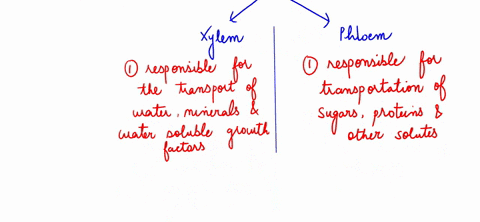 Xylem
① responsible for
the transport of
water, minerals &
water soluble growth
factors
Phloem
① responsible for
transportation of
sugars, proteins &
other solutes